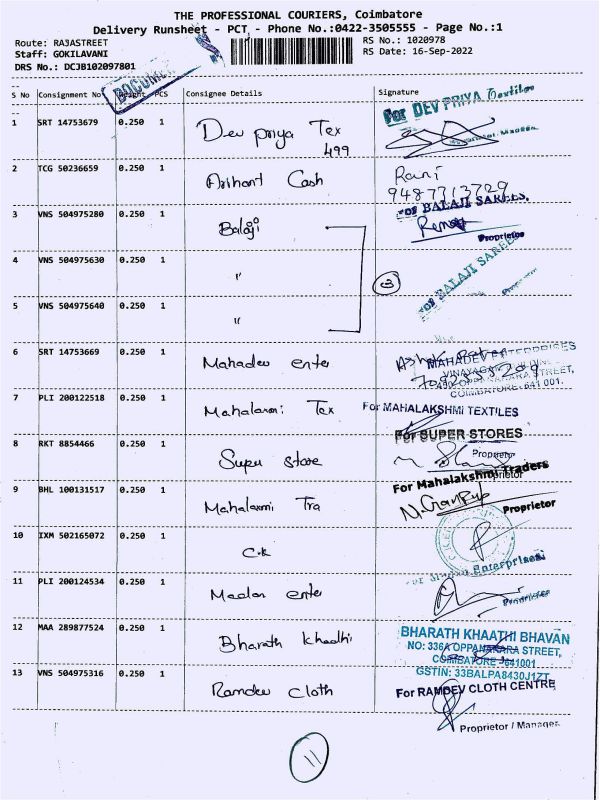 THE PROFESSIONAL COURIERS, Coimbatore
Delivery Runsheet - PCT - Phone No.:0422-3505555 - Page No.:1
Route: RAJASTREET
RS No.: 1020978
Staff: GOKILAVANI
RS Date: 16-Sep-2022
DRS No.: DCJB102097801
S No Consignment No PCS Consignee Details Signature
1 SRT 14753679 0.250 1 Dev priya Tex For DEV PRIYA Textiles
499
2 TCG 50236659 0.250 1 Arihant Cash Rani
9487713729
3 VNS 504975280 0.250 1 Balaji For BALAJI SAREES.
Proprietor
4 VNS 504975630 0.250 1 " For BALAJI SAREES
3
5 VNS 504975640 0.250 1 "
6 SRT 14753669 0.250 1 Mahadev enter MAHADEV ENTERPRISES
OPPANAKARA STREET,
COIMBATORE-641 001.
7 PLI 200122518 0.250 1 Mahalaxmi Tex For MAHALAKSHMI TEXTILES
8 RKT 8854466 0.250 1 Super store For SUPER STORES
Proprietor
9 BHL 100131517 0.250 1 Mahalaxmi Tra For Mahalakshmi Traders
Proprietor
10 IXM 502165072 0.250 1 C.K
11 PLI 200124534 0.250 1 enter Enterprises
Proprietor
12 MAA 289877524 0.250 1 Bharath Khadhi BHARATH KHAATHI BHAVAN
NO: 336A OPPANAKARA STREET,
COIMBATORE-641001
GSTIN: 33BALPA8430J1ZT
13 VNS 504975316 0.250 1 Ramdev Cloth For RAMDEV CLOTH CENTRE
Proprietor / Manager
11